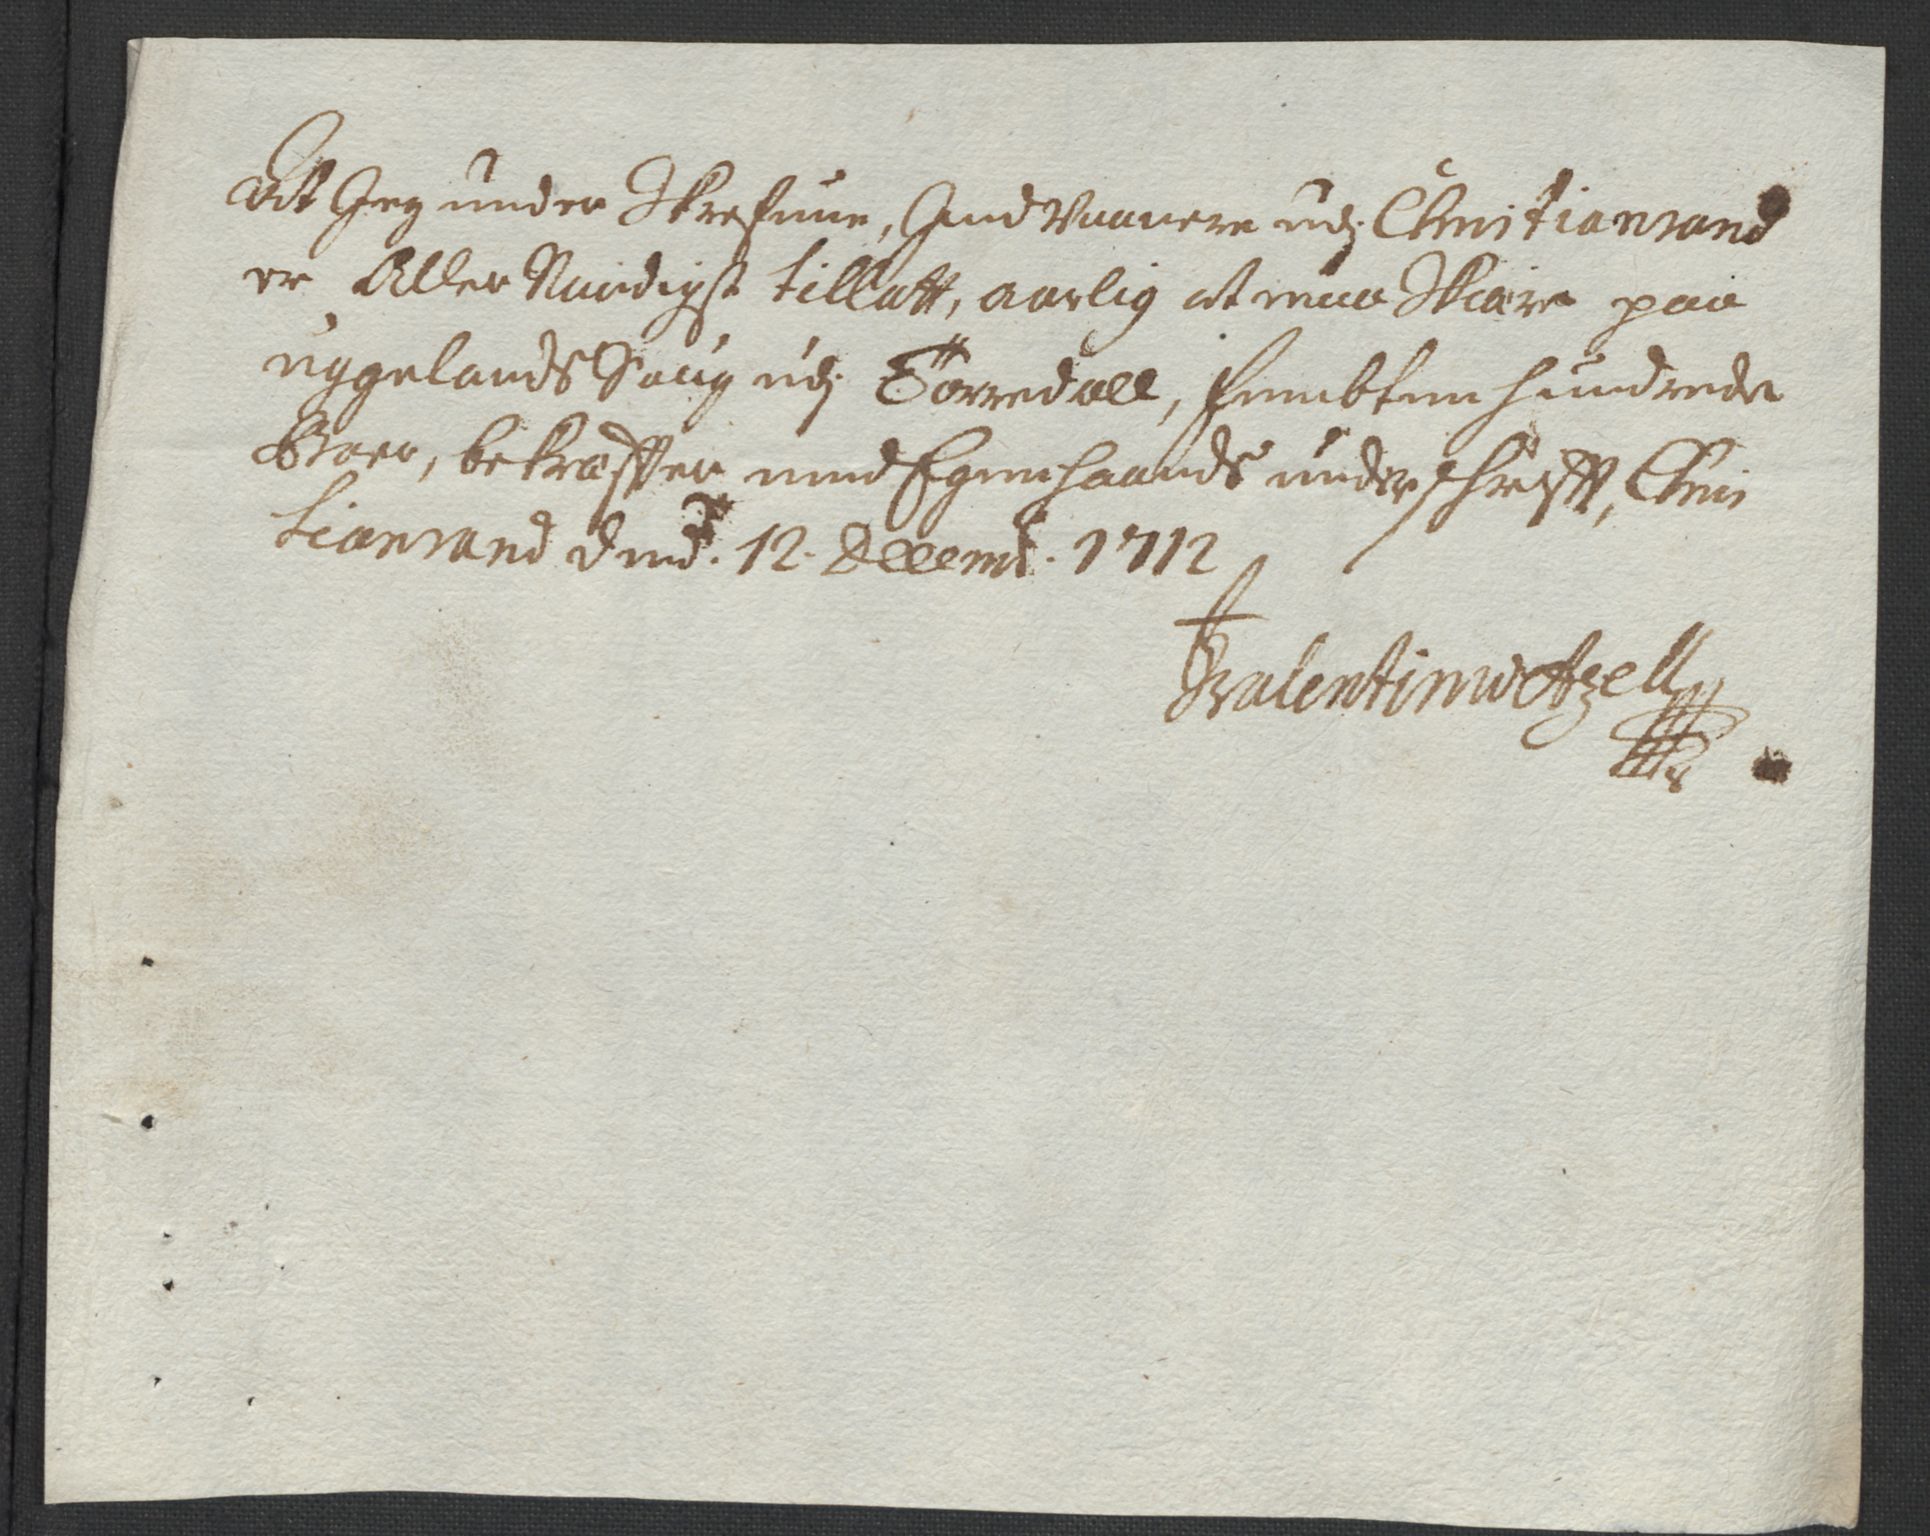 At Jeg under Skrefune, Indvaanere udj Christiansand
er Aller Naadigst tillatt, aarlig at maa Skiære paa
uggelands Saug udj Torredall, fembten hundrede
Boer, bekræffter med Egenhaands underschrifft, Chris
tiansand dend. 12. Decemb. 1712
Valentin Wetzell